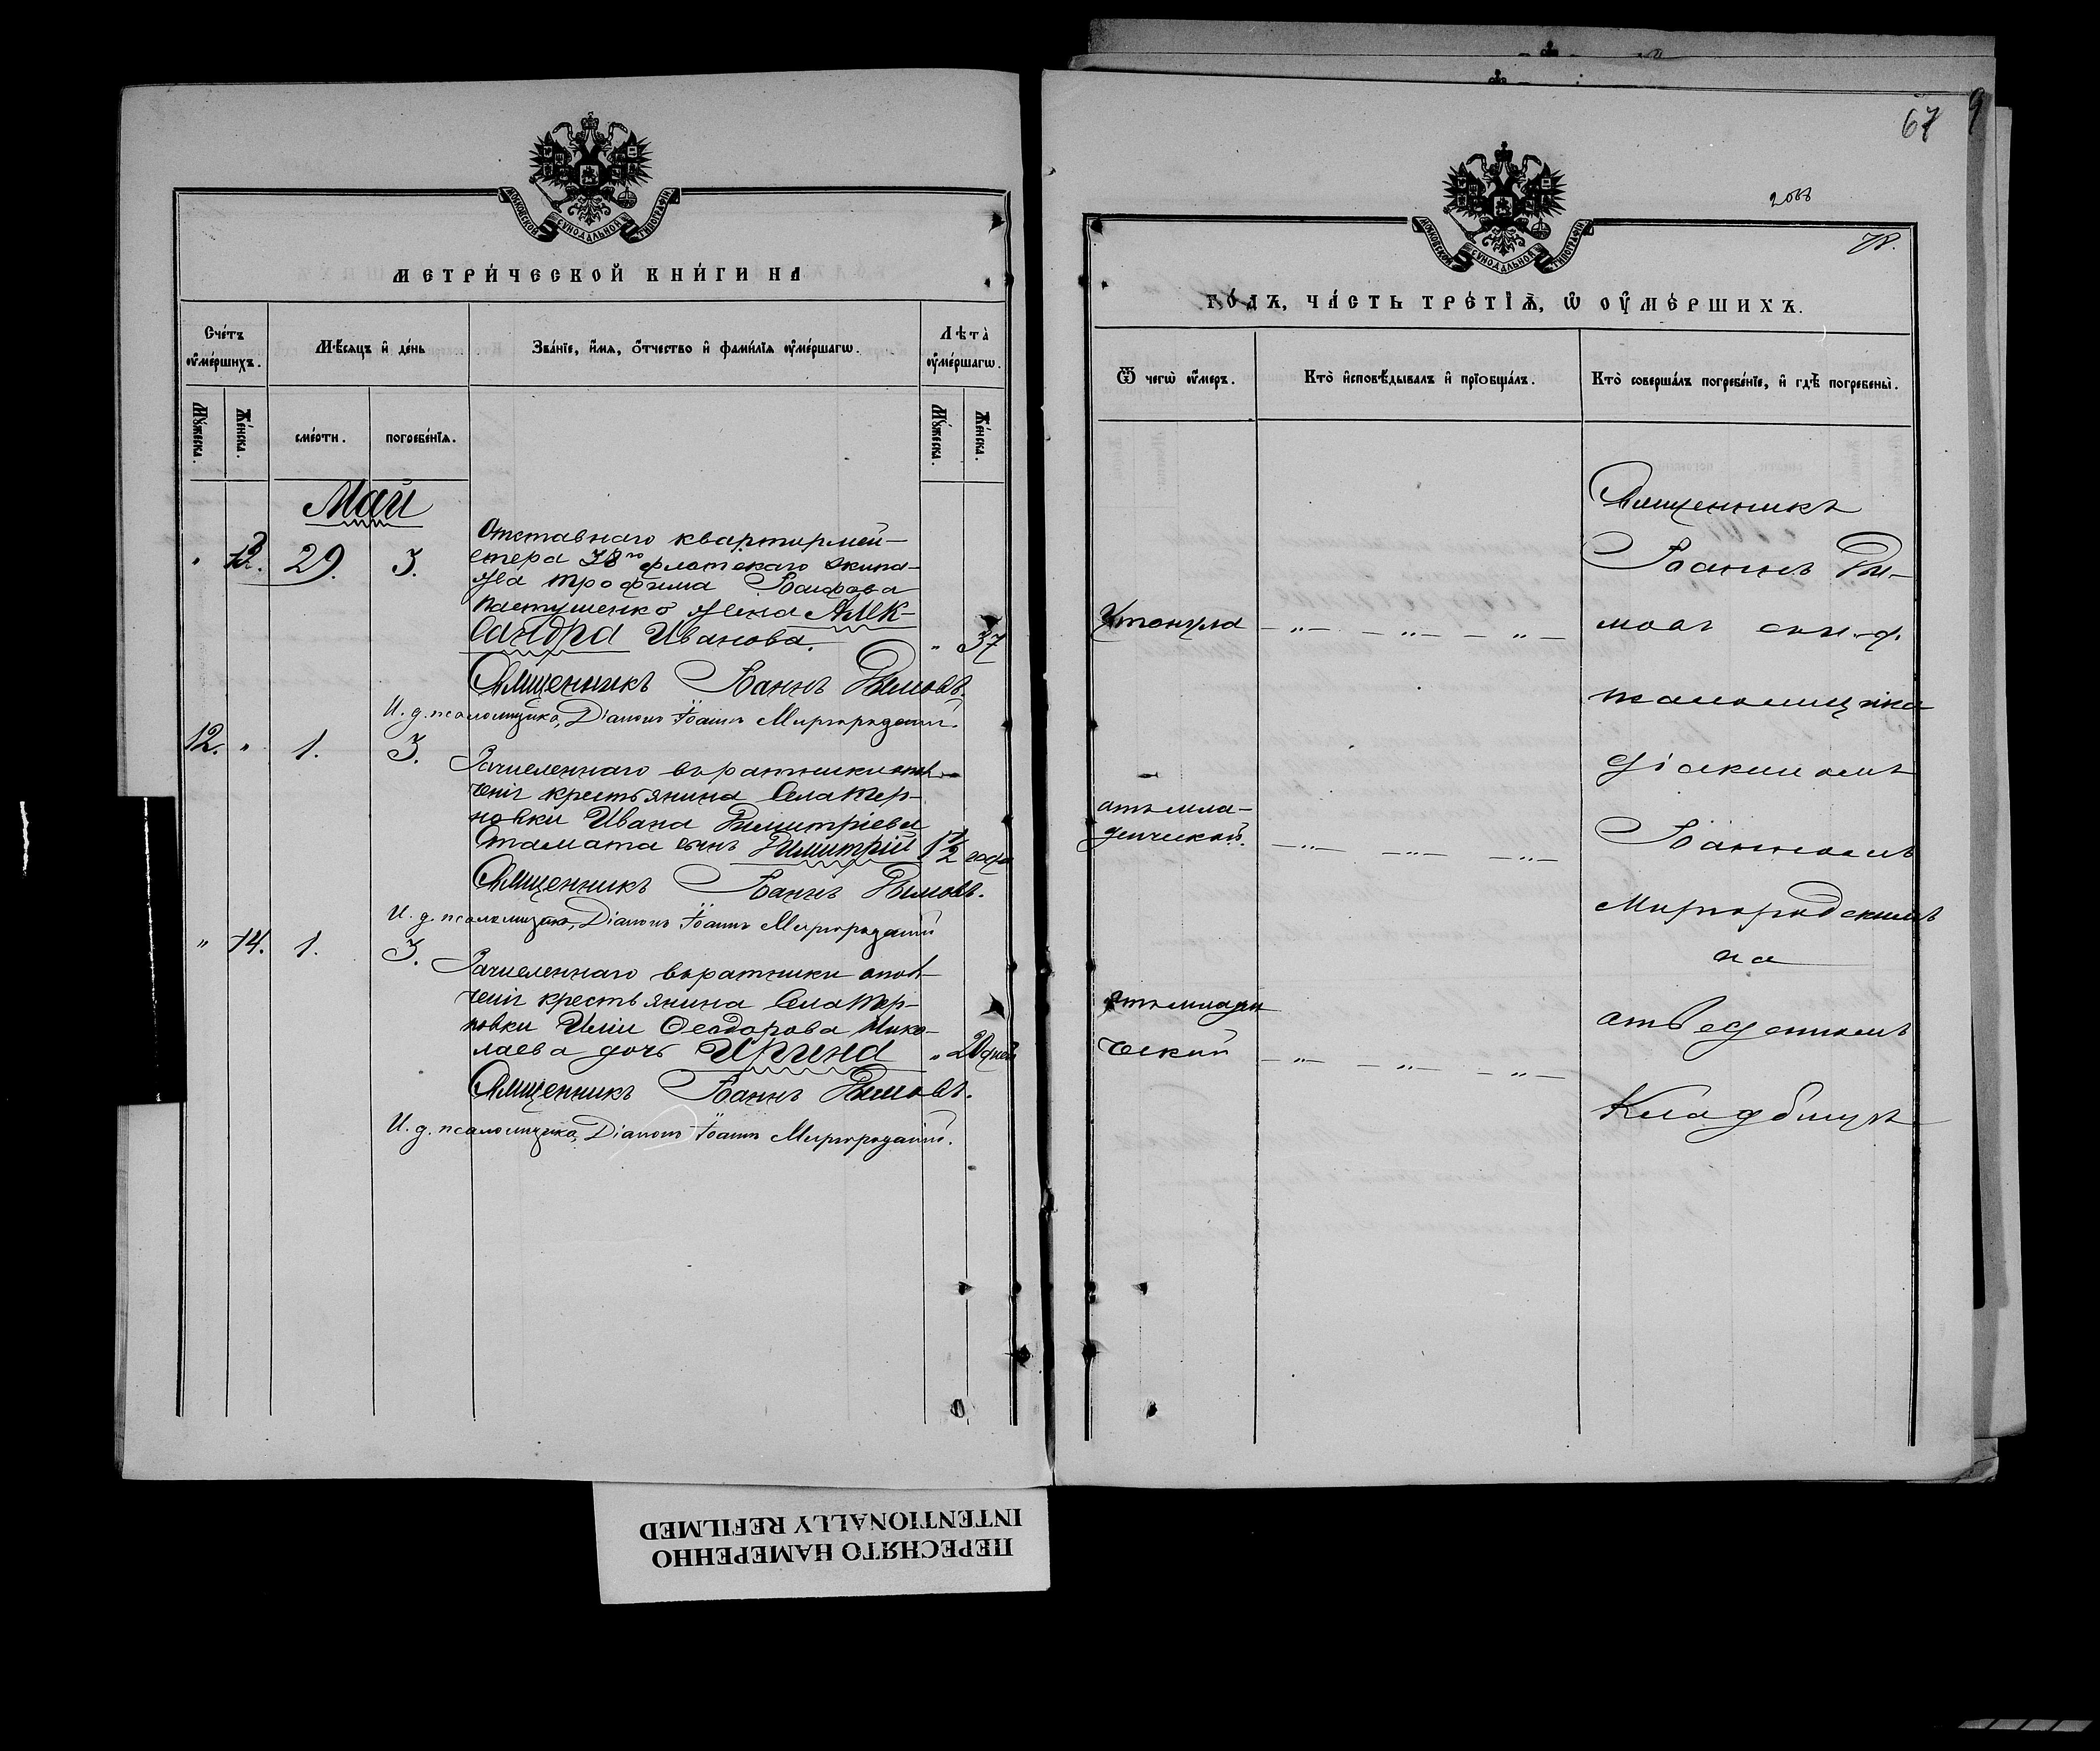 МОСКОВСКОЙ СѴНОДАЛЬНОЙ ТИПОГРАФІИ
МЕТРИ́ЧЕСКОЙ КНИ́ГИ НА
Сче́тъ ᲂу҆ме́ршихъ.
Мѣ́сяцъ и҆ де́нь
Зва́нїе, и҆́мѧ, ѻ҆́тчество и҆ фами́лїѧ ᲂу҆ме́ршагѡ.
Лѣ́та ᲂу҆ме́ршагѡ.
Мꙋ́жеска.
Же́нска.
сме́рти.
погребе́нїѧ.
Мꙋ́жеска.
Же́нска.
Май
" 13. 29. 3.
Отставнаго квартирмей-
стера 38го флотскаго экипа-
жа Трофима
Пастушенко жена Алек-
сандра Иванова. " 37
Священникъ Іоаннъ Дымовъ.
И. д. псаломщика, Діаконъ Іоаннъ Миргородскій.
12. " 1. 3.
Зачисленнаго въ ратники опол-
ченія крестьянина Села Тер-
новки Ивана Димитріева
Стамата сынъ Димитрій 1½ года
Священникъ Іоаннъ Дымовъ.
И. д. псаломщика, Діаконъ Іоаннъ Миргородскій
" 14. 1. 3.
Зачисленнаго въ ратники опол-
ченія крестьянина Села Тер-
новки Иліи Ѳеодорова Нико-
лаева дочь Ирина " 20 дней
Священникъ Іоаннъ Дымовъ.
И. д. псаломщика, Діаконъ Іоаннъ Миргородскій.
67
78.
МОСКОВСКОЙ СѴНОДАЛЬНОЙ ТИПОГРАФІИ
ГО́ДЪ, ЧА́СТЬ ТРЕ́ТЇѦ, Ѡ҆ ОУ҆МЕ́РШИХЪ.
Ѿ чегѡ̀ ᲂу҆́меръ.
Кто̀ и҆сповѣ́дывалъ и҆ прїѡбща́лъ.
Кто̀ соверша́лъ погребе́нїе, и҆ гдѣ̀ погребены̀.
Утонула — " — — " — — " —
отъ мла-
денческой. — " — — " — — " —
отъ младен
ческой — " — — " — — " —
Священникъ
Іоаннъ Ды-
мовъ съ и. д.
псаломщика
діакономъ
Іоанномъ
Миргородскимъ
на
отведенномъ
Кладбищѣ
ПЕРЕСНЯТО НАМЕРЕННО
INTENTIONALLY REFILMED